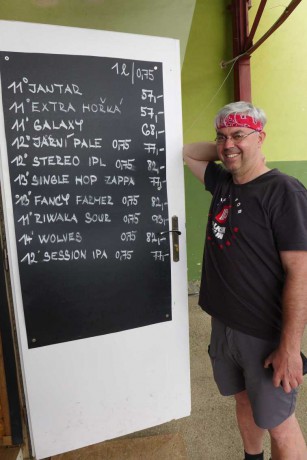 1 l / 0,75
11° JANTAR 57,-
11° EXTRA HOŘKÁ 57,-
11° GALAXY 68,-
12° JÁRNÍ PALE 0,75 77,-
12° STEREO IPL 0,75 82,-
13° SINGLE HOP ZAPPA 77,-
13° FANCY FARMER 0,75 82,-
11° RIWAKA SOUR 0,75 93,-
14° WOLVES 0,75 82,-
12° SESSION IPA 0,75 77,-